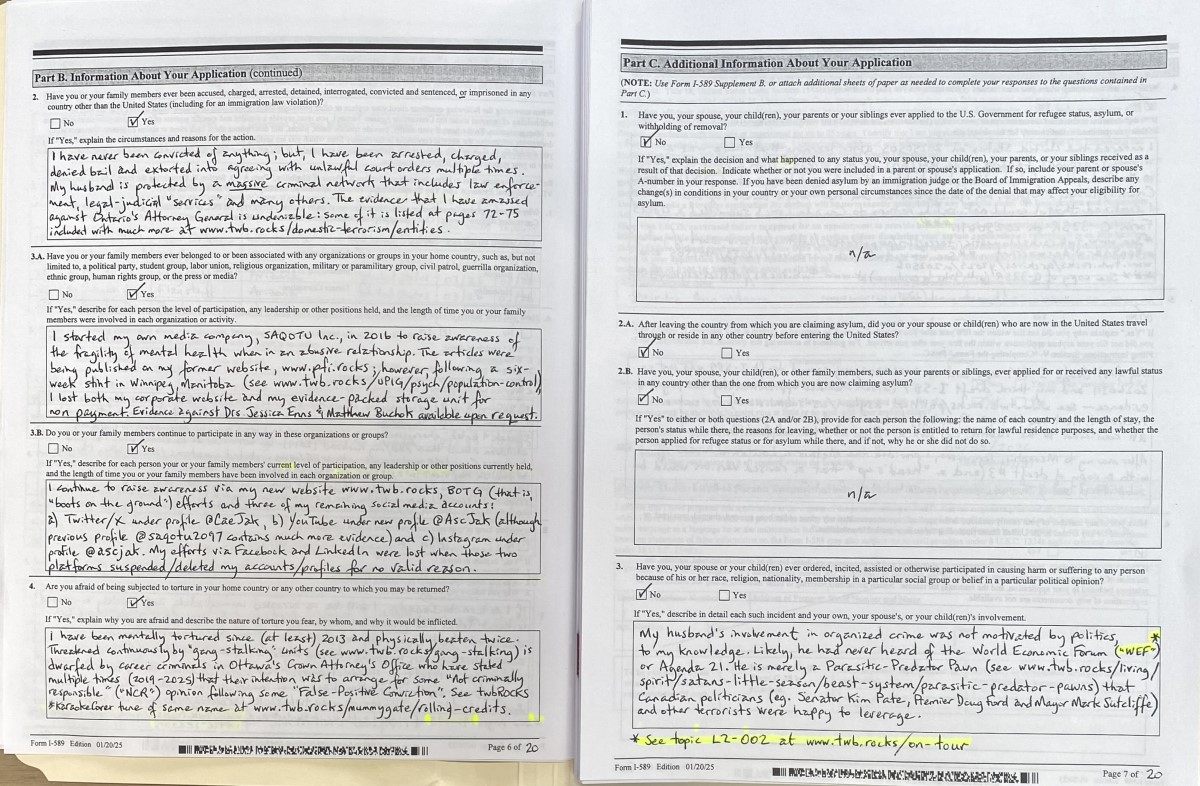 Part B. Information About Your Application (continued)
2. Have you or your family members ever been accused, charged, arrested, detained, interrogated, convicted and sentenced, or imprisoned in any
country other than the United States (including for an immigration law violation)?
No Yes
If "Yes," explain the circumstances and reasons for the action.
I have never been convicted of anything; but, I have been arrested, charged,
denied bail and extorted into agreeing with unlawful court orders multiple times.
My husband is protected by a massive criminal network that includes law enforce-
ment, legal-judicial "services" and many others. The evidence that I have amassed
against Ontario's Attorney General is undeniable: some of it is listed at pages 72-75
included with much more at www.twb.rocks/domestic-terrorism/entities.
3.A. Have you or your family members ever belonged to or been associated with any organizations or groups in your home country, such as, but not
limited to, a political party, student group, labor union, religious organization, military or paramilitary group, civil patrol, guerrilla organization,
ethnic group, human rights group, or the press or media?
No Yes
If "Yes," describe for each person the level of participation, any leadership or other positions held, and the length of time you or your family
members were involved in each organization or activity.
I started my own media company, SAQOTU Inc., in 2016 to raise awareness of
the fragility of mental health when in an abusive relationship. The articles were
being published on my former website, www.pfi.rocks; however, following a six-
week stint in Winnipeg, Manitoba (see www.twb.rocks/UPIG/psych/population-control)
I lost both my corporate website and my evidence-packed storage unit for
non payment. Evidence against Drs Jessica Enns & Matthew Buchok available upon request.
3.B. Do you or your family members continue to participate in any way in these organizations or groups?
No Yes
If "Yes," describe for each person your or your family members' current level of participation, any leadership or other positions currently held,
and the length of time you or your family members have been involved in each organization or group.
I continue to raise awareness via my new website www.twb.rocks, BOTG (that is,
"boots on the ground") efforts and three of my remaining social media accounts:
a) Twitter/X under profile @CaeJak, b) YouTube under new profile @AscJak (although
previous profile @saqotu2097 contains much more evidence) and c) Instagram under
profile @ascjak. My efforts via Facebook and LinkedIn were lost when those two
platforms suspended/deleted my accounts/profiles for no valid reason.
4. Are you afraid of being subjected to torture in your home country or any other country to which you may be returned?
No Yes
If "Yes," explain why you are afraid and describe the nature of torture you fear, by whom, and why it would be inflicted.
I have been mentally tortured since (at least) 2013 and physically beaten twice.
Threatened continuously by "gang-stalking" units (see www.twb.rocks/gang-stalking) is
dwarfed by career criminals in Ottawa's Crown Attorney's Office who have stated
multiple times (2019-2025) that their intention was to arrange for some "Not criminally
responsible" ("NCR") opinion following some "False-Positive Conviction". See twbRocks
#KaraokeCover tune of same name at www.twb.rocks/mummygate/rolling-credits.
Form I-589 Edition 01/20/25
Page 6 of 20
Part C. Additional Information About Your Application
(NOTE: Use Form I-589 Supplement B, or attach additional sheets of paper as needed to complete your responses to the questions contained in
Part C.)
1. Have you, your spouse, your child(ren), your parents or your siblings ever applied to the U.S. Government for refugee status, asylum, or
withholding of removal?
No Yes
If "Yes," explain the decision and what happened to any status you, your spouse, your child(ren), your parents, or your siblings received as a
result of that decision. Indicate whether or not you were included in a parent or spouse's application. If so, include your parent or spouse's
A-number in your response. If you have been denied asylum by an immigration judge or the Board of Immigration Appeals, describe any
change(s) in conditions in your country or your own personal circumstances since the date of the denial that may affect your eligibility for
asylum.
n/a
2.A. After leaving the country from which you are claiming asylum, did you or your spouse or child(ren) who are now in the United States travel
through or reside in any other country before entering the United States?
No Yes
2.B. Have you, your spouse, your child(ren), or other family members, such as your parents or siblings, ever applied for or received any lawful status
in any country other than the one from which you are now claiming asylum?
No Yes
If "Yes" to either or both questions (2A and/or 2B), provide for each person the following: the name of each country and the length of stay, the
person's status while there, the reasons for leaving, whether or not the person is entitled to return for lawful residence purposes, and whether the
person applied for refugee status or for asylum while there, and if not, why he or she did not do so.
n/a
3. Have you, your spouse or your child(ren) ever ordered, incited, assisted or otherwise participated in causing harm or suffering to any person
because of his or her race, religion, nationality, membership in a particular social group or belief in a particular political opinion?
No Yes
If "Yes," describe in detail each such incident and your own, your spouse's, or your child(ren)'s involvement.
My husband's involvement in organized crime was not motivated by politics, *
to my knowledge. Likely, he had never heard of the World Economic Forum ("WEF")
or Agenda 21. He is merely a Parasitic-Predator Pawn (see www.twb.rocks/living/
spirit/satans-little-season/beast-system/parasitic-predator-pawns) that
Canadian politicians (eg. Senator Kim Pate, Premier Doug Ford and Mayor Mark Sutcliffe)
and other terrorists were happy to leverage.
* See topic L2-002 at www.twb.rocks/on-tour
Form I-589 Edition 01/20/25
Page 7 of 20